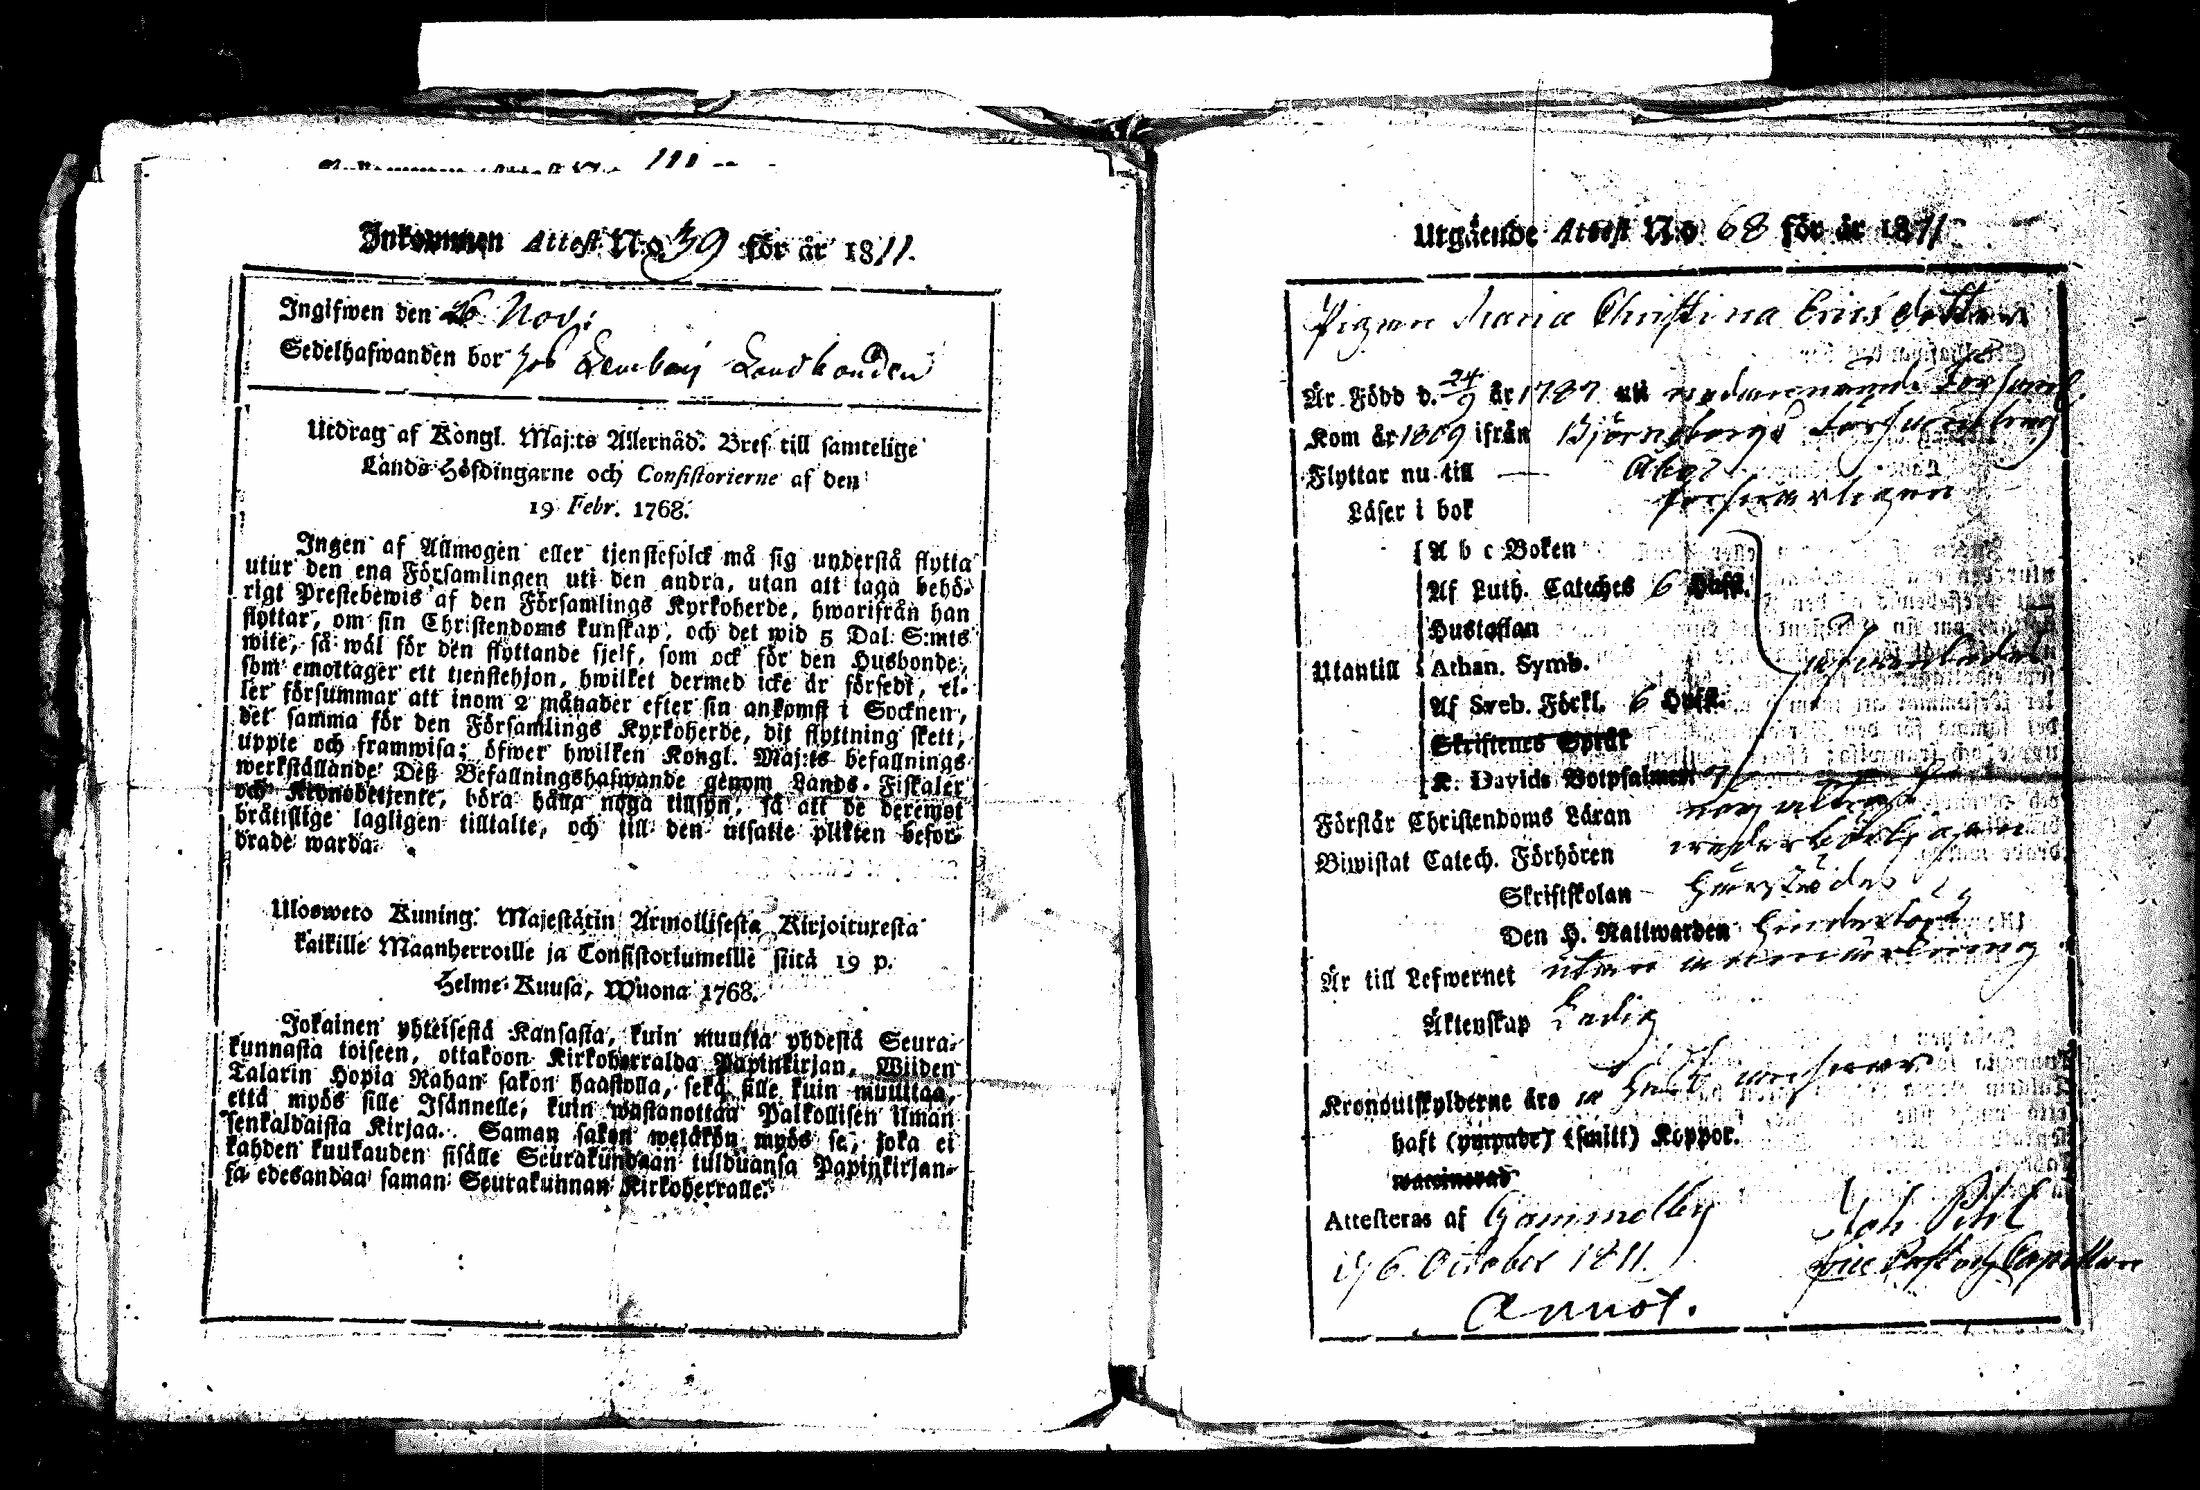 Inkommen Attest No 39 för år 1811.
Ingifwen den 26 Nov:
Sedelhafwanden bor hos Lembois Landbonden
Utdrag af Kongl. Maj:ts Allernåd. Bref till samtelige
Lands-Höfdingarne och Consistorierne af den
19 Febr. 1768.
Ingen af Allmogen eller tjenstefolck må sig understå flytta
utur den ena Församlingen uti den andra, utan att taga behö-
rigt Prestebewis af den Församlings Kyrkoherde, hwarifrån han
flyttar, om sin Christendoms kunskap, och det wid 5 Dal. S:mts
wite, så wäl för den flyttande sjelf, som ock för den Husbonde,
som emottager ett tjenstehjon, hwilket dermed icke är försedt, el-
ler försummar att inom 2 månader efter sin ankomst i Socknen,
det samma för den Församlings Kyrkoherde, dit flyttning skett,
uppte och framwisa; öfwer hwilken Kongl. Maj:ts befallnings
werkställande Deß Befallningshafwande genom Lands-Fiskaler
och Kronobetjente, böra hålla noga tillsyn, så att de deremot
bråtislige lagligen tilltalte, och till den utsatte plikten befor-
drade warda.
Ulosweto Kuning. Majestätin Armollisesta Kirjoituxesta
kaikille Maanherroille ja Consistoriumeille siitä 19 p.
Helme-Kuusa, Wuona 1768.
Jokainen yhteisestä Kansasta, kuin muutta yhdestä Seura-
kunnasta toiseen, ottakoon Kirkoherralda Papinkirjan, Wiiden
Talarin Hopia Rahan sakon haastolla, sekä sille kuin muuttaa,
että myös sille Isännelle, kuin wastanottaa Palkollisen ilman
senkaldaista Kirjaa. Saman sakon wetäkön myös se, joka ei
kahden kuukauden sisälle Seurakundaan tulduansa Papinkirjan-
sa edesandaa saman Seurakunnan Kirkoherralle.
Utgående Attest No 68 för år 1811
Pigan Maria Christina Ericsdotter
Är Född d. 24/9 år 1787 uti nedannämnde Församl.
Kom år 1809 ifrån Björneborgs Församling
Flyttar nu till — Åbo
Läser i bok försvarligen
A b c Boken
Af Luth. Cateches 6 Hufst.
Hustaflan
Utantill Athan. Symb.
Af Sveb. Förkl. 6 Hufst.
Skriftenes Språk
K. Davids Botpsalmer 7
Förstår Christendoms Läran
Biwistat Catech. Förhören
Skriftskolan
Den H. Nattwarden
Är till Lefwernet utan anmärkning
Äktenskap Ledig
Kronoutskylderne äro
haft (ympade) (smitt) Koppor.
waccinerad
Attesteras af Gammelby Joh. Pihl
d. 6. October 1811. Vice Past. och Capellan
Annot.